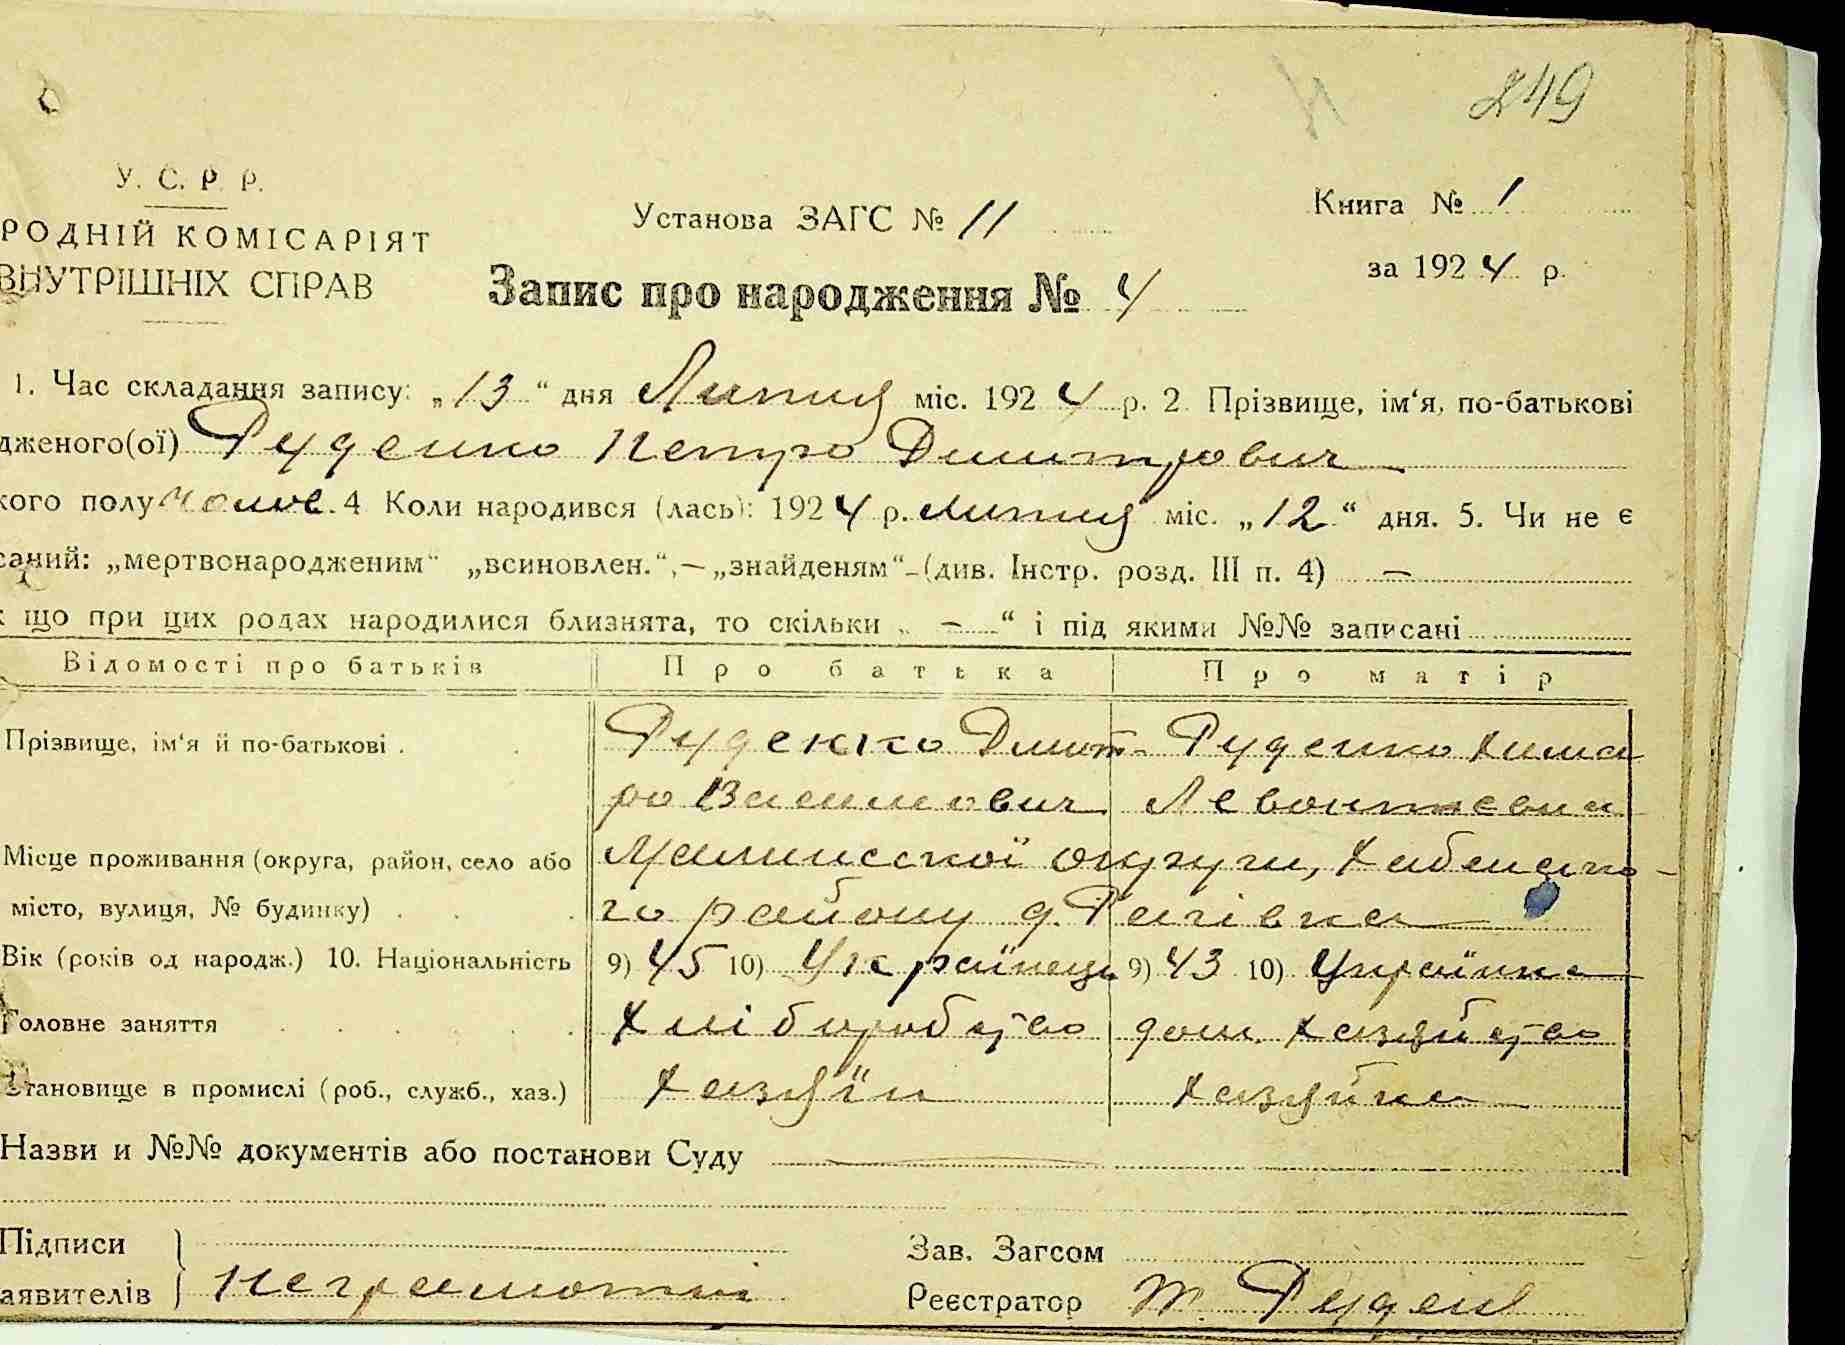 249
У. С. Р. Р.
РОДНІЙ КОМІСАРІЯТ
ВНУТРІШНІХ СПРАВ
Установа ЗАГС № 11
Книга № 1
за 1924 р.
Запис про народження № 4
1. Час складання запису: „13“ дня Липня міс. 1924 р. 2 Прізвище, ім‘я, по-батькові
дженого(ої) Руденко Петро Дмитрович
кого полу чолов. 4 Коли народився (лась): 1924 р. липня міс. „12“ дня. 5. Чи не є
саний: „мертвонародженим“ „всиновлен.“,—„знайденям“-(див. Інстр. розд. III п. 4) —
що при цих родах народилися близнята, то скільки „ — “ і під якими №№ записані
Відомості про батьків Про батька Про матір
Прізвище, ім‘я й по-батькові . Руденко Дмит- Руденко Хима
ро Василович Левонтієвна
Місце проживання (округа, район, село або Малинської округи, Хабенсько-
місто, вулиця, № будинку) . . го району д. Рагівка
Вік (років од народж.) 10. Національність 9) 45 10) Українець 9) 43 10) Українка
Головне заняття . . . . . Хліборобство дом. хазяйство
Становище в промислі (роб., служб., хаз.) Хазяїн Хазяйка
Назви и №№ документів або постанови Суду
Підписи
аявителів } неграмотні
Зав. Загсом
Реєстратор М. Руден